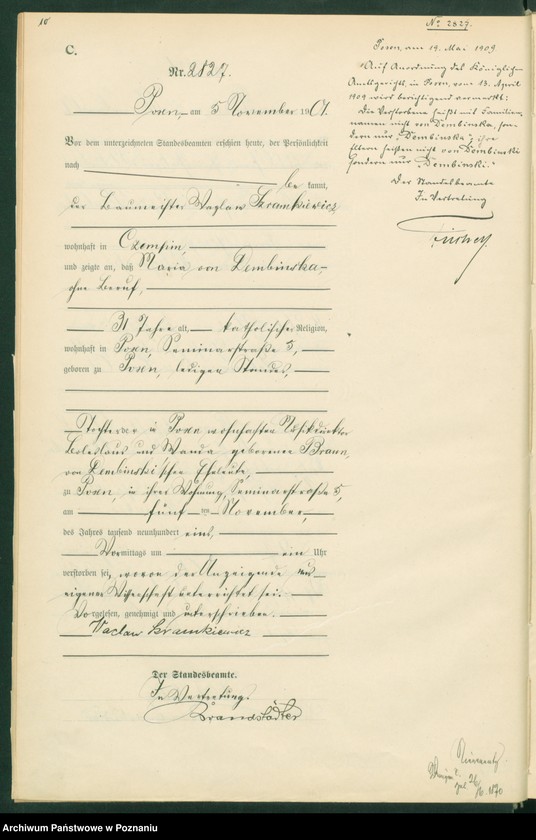 10
C.
Nr. 2827.
Posen, am 5 November 1901.
Vor dem unterzeichneten Standesbeamten erschien heute, der Persönlichkeit
nach
be kannt,
der Baumeister Waclaw
wohnhaft in Czempin,
und zeigte an, daß Maria von Dembinska
ohne Beruf,
31 Jahre alt, katholischer Religion,
wohnhaft in Posen, Seminarstraße 5,
geboren zu Posen, ledigen Standes,
Tochter der in Posen wohnhaften Musikdirektor
Boleslaus und Wanda geborenen Braun,
von Dembinski'schen Eheleute,
zu Posen, in ihrer Wohnung, Seminarstraße 5,
am fünf ten November
des Jahres tausend neunhundert eins,
Vormittags um ein Uhr
verstorben sei, wovon der Anzeigende aus
eigener Wissenschaft unterrichtet sei.
Vorgelesen, genehmigt und unterschrieben.
Vaclaw
Der Standesbeamte.
In Vertretung.
Brandstädter
No. 2827.
Posen, am 19. Mai 1909
Auf Anordnung des Königlichen
Amtsgerichts in Posen, vom 13. April
1909 wird berichtigend vermerkt:
Die Verstorbene heißt mit Familien-
namen nicht von Dembinska, son-
dern nur "Dembinska", ihre
Eltern heißen nicht von Dembinski
sondern nur "Dembinski."
Der Standesbeamte
In Vertretung
Archiwum Państwowe w Poznaniu